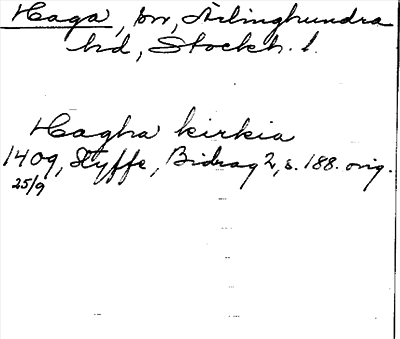 Haga, sn, Ärlinghundra
hd, Stockh. l.
Hagha kirkia
1409, Styffe, Bidrag 2, s. 188. orig.
25/9